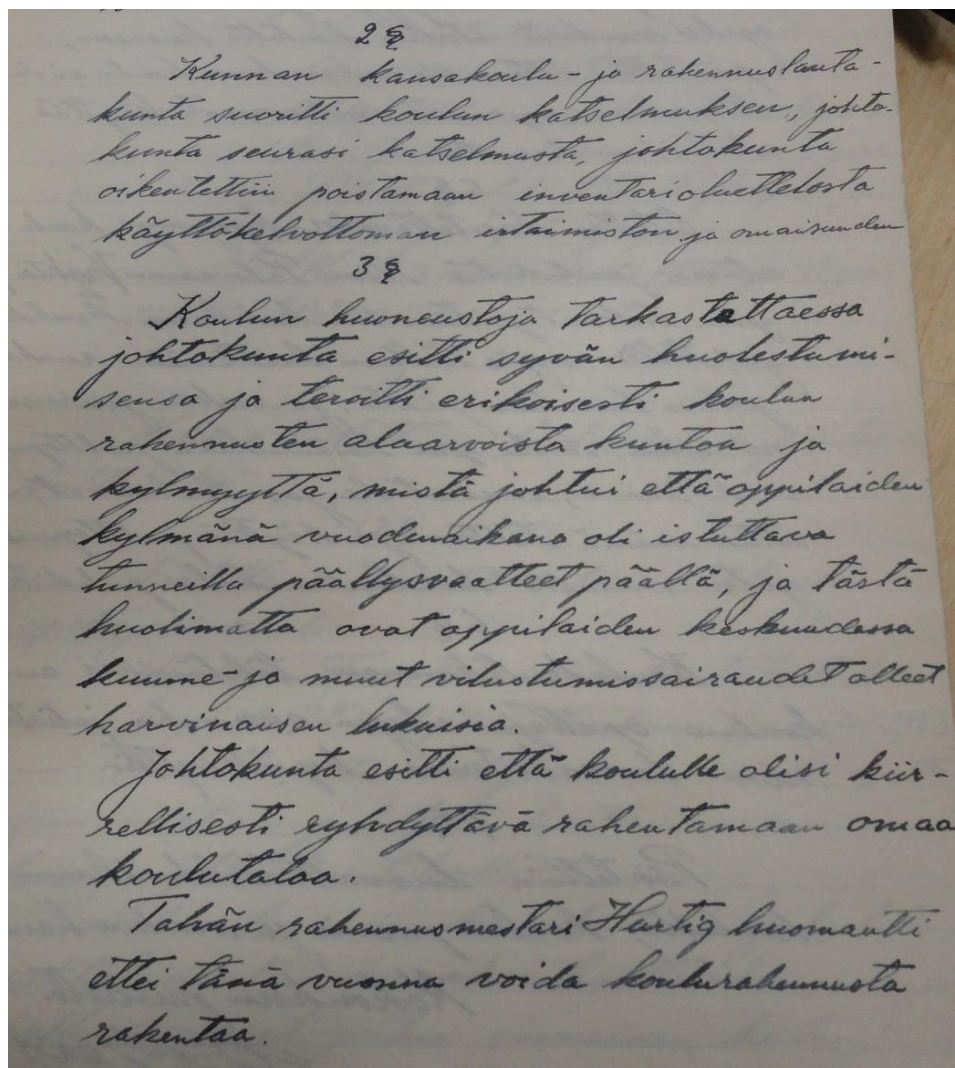 2 §
Kunnan kansakoulu- ja rakennuslauta-
kunta suoritti koulun katselmuksen, johto-
kunta seurasi katselmusta, johtokunta
oikeutettiin poistamaan inventarioluettelosta
käyttökelvottoman irtaimiston ja omaisuuden
3 §
Koulun huoneustoja tarkastettaessa
johtokunta esitti syvän huolestumi-
sensa ja teroitti erikoisesti koulun
rakennusten alaarvoista kuntoa ja
kylmyyttä, mistä johtui että oppilaiden
kylmänä vuodenaikana oli istuttava
tunneilla päällysvaatteet päällä, ja tästä
huolimatta ovat oppilaiden keskuudessa
kuume- ja muut vilustumissairaudet olleet
harvinaisen lukuisia.
Johtokunta esitti että koululle olisi kiir-
rellisesti ryhdyttävä rakentamaan omaa
koulutaloa.
Tähän rakennusmestari Hartig huomautti
ettei tänä vuonna voida koulurakennusta
rakentaa.